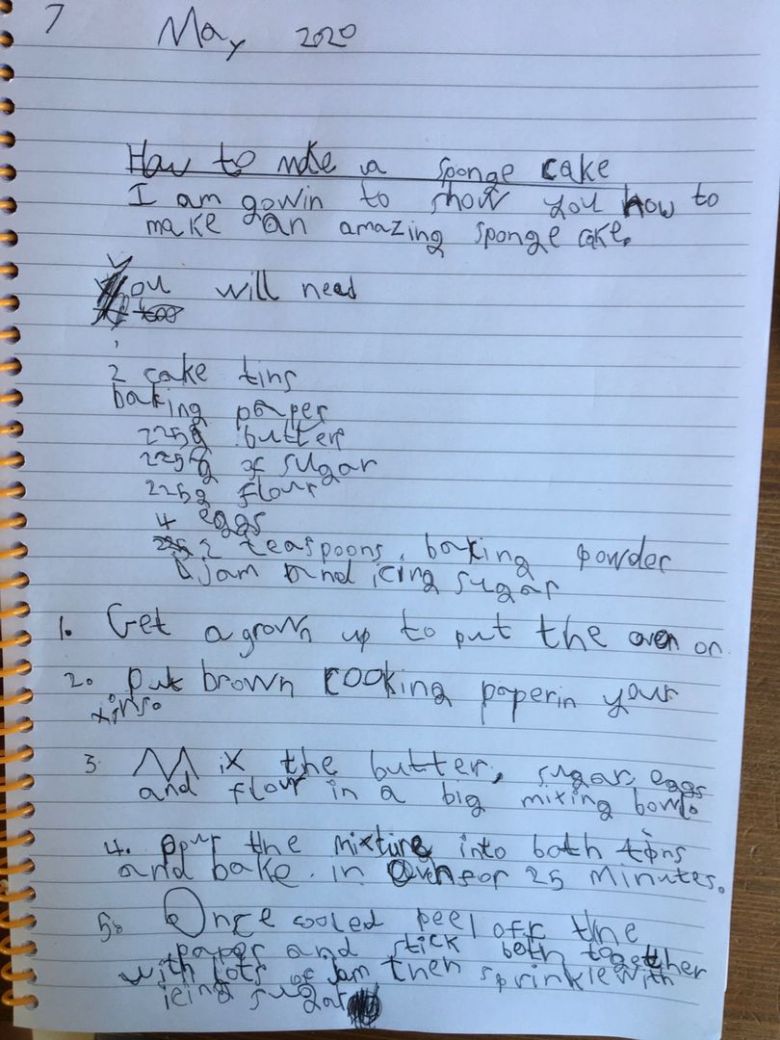 7 May 2020
How to make a sponge cake
I am gowin to show you how to
make an amazing sponge cake.
You will need
2 cake tins
baking paper
225g butter
225g of sugar
225g flour
4 eggs
2 teaspoons. baking powder
jam and icing sugar
1. Get a grown up to put the oven on.
2. put brown cooking paper in your
tins.
3. Mix the butter, sugar, eggs
and flour in a big mixing bowl.
4. pour the mixture into both tins
and bake. in oven for 25 minutes.
5. Once cooled peel off the
paper and stick both together
with lots of jam then sprinkle with
icing sugar